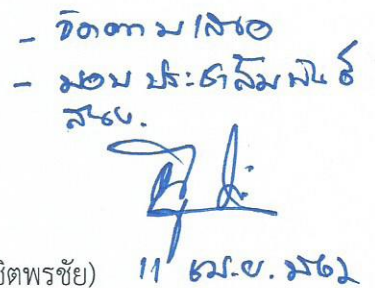 - จัดตามเสนอ
- มอบ ประชาสัมพันธ์
สบย.
ชิตพรชัย) 11 เม.ย. ๒๕๖๒